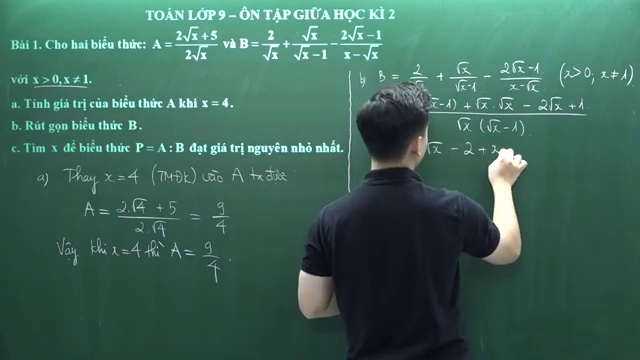 TOÁN LỚP 9 – ÔN TẬP GIỮA HỌC KÌ 2
Bài 1. Cho hai biểu thức: A = (2√x + 5)/(2√x) và B = 2/√x + √x/(√x − 1) − (2√x − 1)/(x − √x)
với x > 0, x ≠ 1.
a. Tính giá trị của biểu thức A khi x = 4.
b. Rút gọn biểu thức B.
c. Tìm x để biểu thức P = A : B đạt giá trị nguyên nhỏ nhất.
a) Thay x = 4 (TMĐK) vào A ta được
A = (2.√4 + 5)/(2.√4) = 9/4
Vậy khi x = 4 thì A = 9/4.
b) B = 2/√x + √x/(√x-1) − (2√x-1)/(x-√x) (x>0; x≠1)
x-1) + √x.√x − 2√x + 1
√x (√x-1).
√x − 2 + x